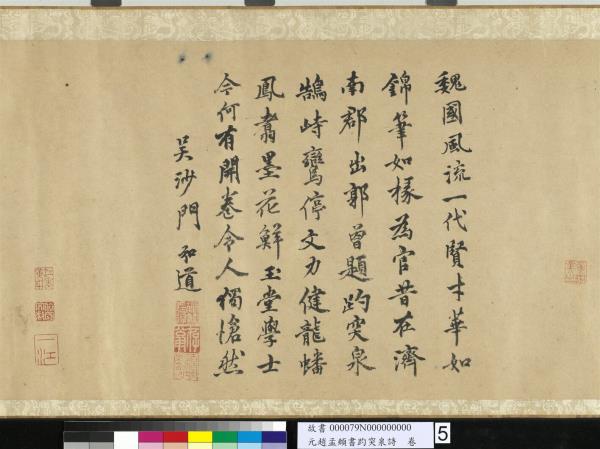 魏國風流一代賢才華如
錦筆如椽為官昔在濟
南郡出郭曾題趵突泉
鵠峙鸞停文力健龍蟠
鳳翥墨花鮮玉堂學士
今何有開卷令人獨愴然
吳沙門 如道
一江
故書 000079N000000000
元趙孟頫書趵突泉詩 卷
5